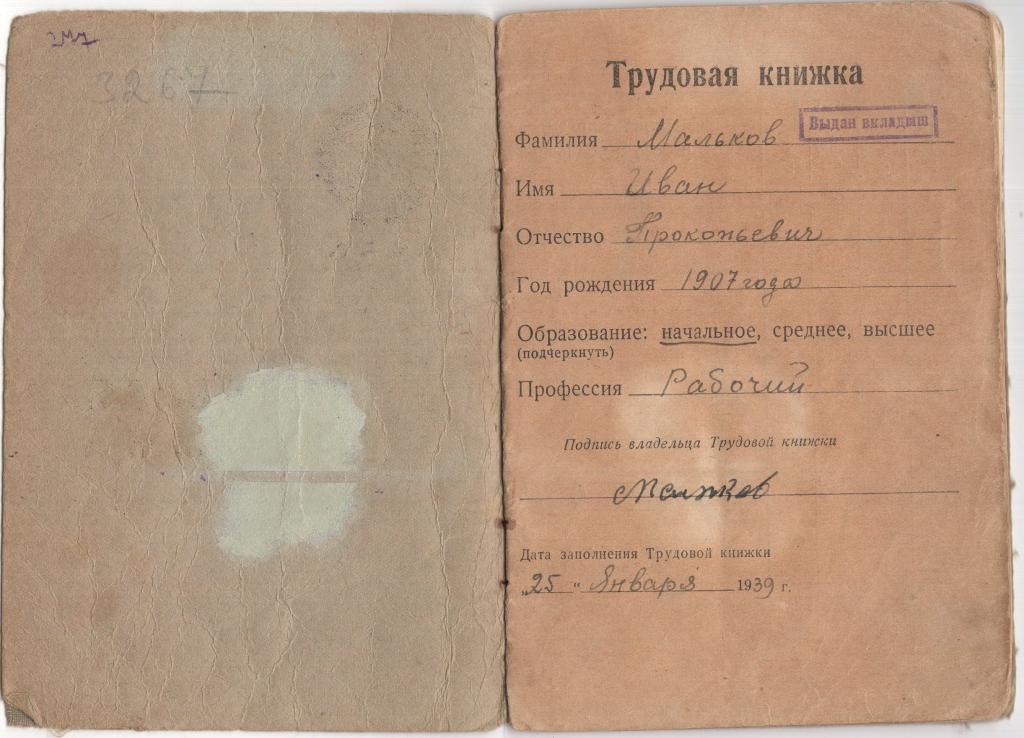 3267
Трудовая книжка
Выдан вкладыш
Фамилия Мальков
Имя Иван
Отчество Прокопьевич
Год рождения 1907 года
Образование: начальное, среднее, высшее
(подчеркнуть)
Профессия Рабочий
Подпись владельца Трудовой книжки
Мальков
Дата заполнения Трудовой книжки
„25 “ Января 1939 г.